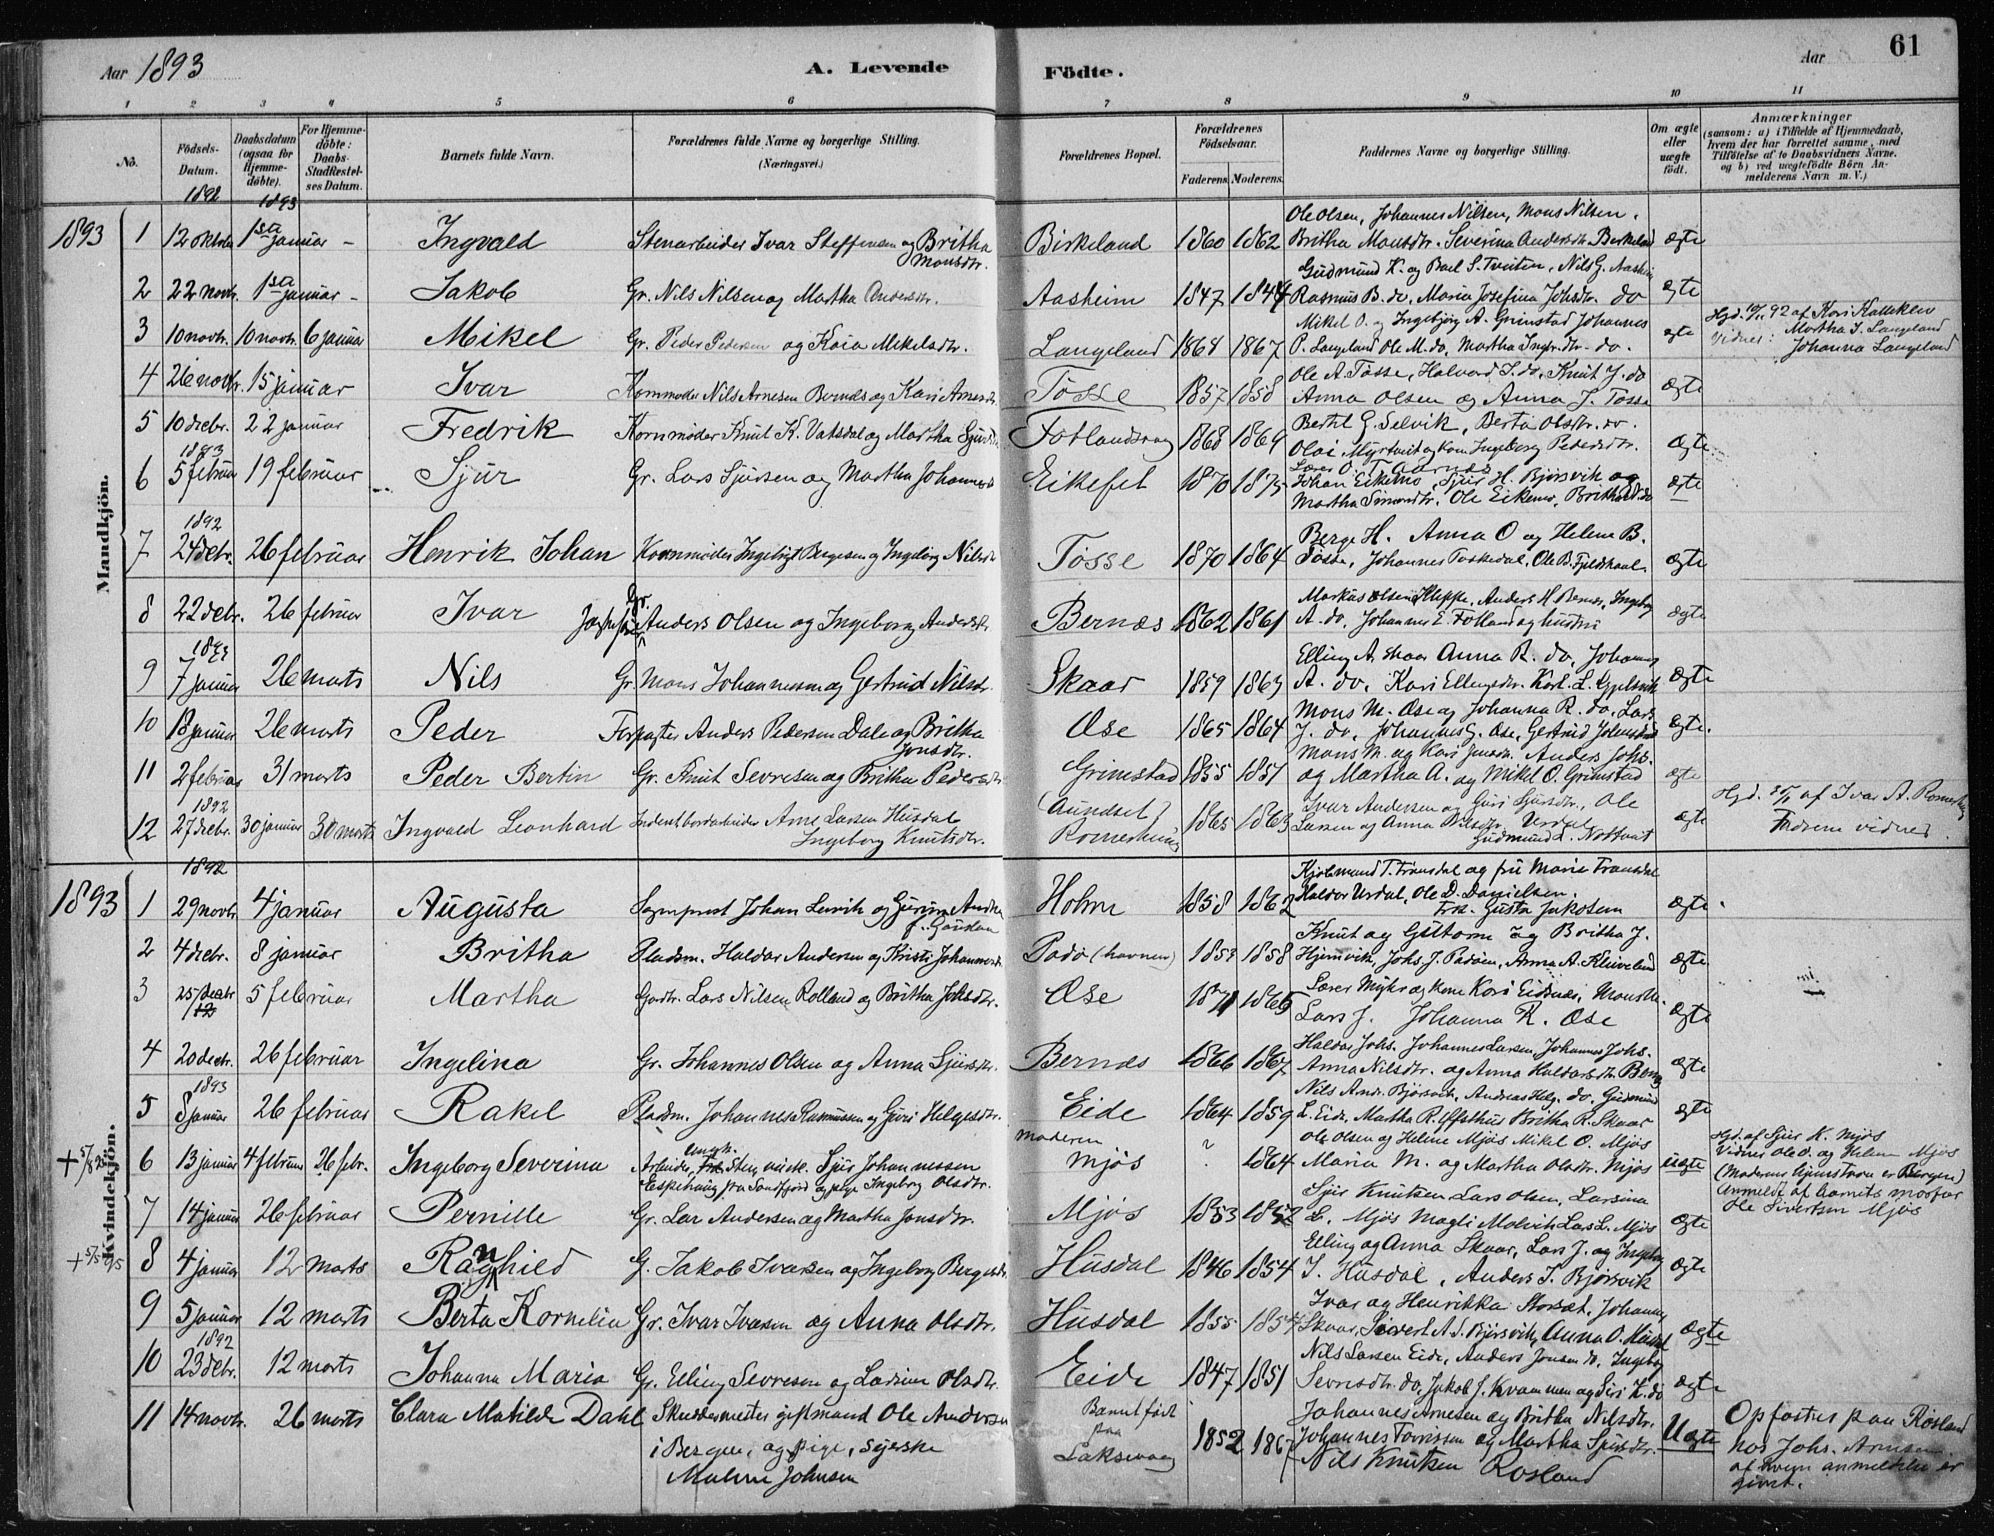 Aar 1893
A. Levende Födte.
Aar
61
1 2 3 4 5 6 7 8 9 10 11
No.
Födsels-Datum.
Daabsdatum (ogsaa for Hjemme-döbte).
For Hjemme-döbte: Daabs-Stadfæstel-ses Datum.
Barnets fulde Navn.
Forældrenes fulde Navne og borgerlige Stilling. (Næringsvei.)
Forældrenes Bopæl.
Forældrenes Födselsaar.
Faderens. Moderens.
Faddernes Navne og borgerlige Stilling.
Om ægte eller uægte födt.
Anmærkninger (saasom: a) i Tilfælde af Hjemmedaab, hvem der har forrettet samme, med Tilföielse af to Daabsvidners Navne. og b) ved uægtefödte Börn An-melderens Navn m. V.)
1892 1893
Mandkjön.
1893 1 12 oktober 1ste januar - Ingvald Stenarbeider Ivar Steffensen og Britha Monsdtr. Birkeland 1860 1862 Ole Olsen, Johannes Nilsen, Mons Nilsen, Britha Monsdtr. Severina Andersdtr. Berkeland ægte
2 22 novbr. 1ste januar - Jakob Gr. Nils Nilsen og Martha Andersdtr. Aasheim 1847 1844 Gudmund K. og Boel S. Tveiten, Nils G. Aasheim Rasmus B. do, Maria Josefina Johsdtr. do ægte
3 10 novbr. 10 novbr. 6 januar Mikel Gr. Peder Pedersen og Kaia Mikelsdtr. Langeland 1868 1867 Mikel O. og Ingebjørg A. Grimstad Johannes P. Langeland Ole M. do, Martha Ingbr.dtr. do. ægte Hjd. 10/11 92 af Kari Kalleklev Vidner: Martha I. Langeland Johanna Langeland
4 26 novbr. 15 januar Ivar Kornmøder Nils Arnesen Bernæs og Kari Arnesdtr. Tøsse 1857 1858 Ole A. Tøsse, Halvord I. do, Knut J. do Anna Olsen og Anna J. Tøsse ægte
5 10 decbr. 22 januar Fredrik Kornmøder Knut K. Vatsdal og Martha Sjursdtr. Fotlandsvaag 1868 1869 Bertel G. Selvik, Berta Olsdtr. do. Olai Myrtveit og kone Ingeborg Pedersdtr. ægte
1893
6 5 februar 19 februar Sjur Gr. Lars Sjursen og Martha Johannesdtr. Eikefet 1870 1875 Johan Eikemo, Sjur H. Bjørsvik og Martha Simonsdtr. Ole Eikemo, Britha do ægte
1892
7 24 debr. 26 februar Henrik Johan Kornmøder Ingebrigt Bergesen og Ingeborg Nilsdtr. Tøsse 1870 1864 Berge H. Anna O og Helene B. Tøsse, Johannes Toskedal, Ole B. Fjeldskaal. ægte
8 22 debr. 26 februar Ivar Gr. Anders Olsen og Ingeborg Andersdtr. Bernæs 1862 1861 Markus Olsen Kleppe, Anders H Bernes, Ingeborg A. do, Johannes E. Fotland og hustru ægte
1893
9 7 januar 26 marts Nils Gr. Mons Johannessen og Gertrud Nilsdtr. Skaar 1859 1863 Elling A. Skaar Anna R. do, Johannes A. do, Kari Ellingsdtr. Karl L. ægte
10 18 januar 26 marts Peder Forpagter Anders Pedersen Dale og Britha Jonsdtr. Øse 1865 1864 Mons M. Øse og Johanna R. do, Lars J. do, Johannes G. Øse, Gertrud Johnsdtr. ægte.
11 2 februar 31 marts Peder Bertin Gr. Knut Sevresen og Britha Pedersdtr. Grimstad 1855 1857 Mons M. og Kari Jonsdtr. Anders Johs. og Martha A. og Mikel O. Grimstad ægte
1892
12 27 debr. 30 januar 30 marts Ingvald Leonhard Arne Larsen Husdal Ingeborg Knutsdtr. (Aundset) Romerheim 1865 1863 Ivar Andersen og Guri Sjursdtr., Ole Larsen og Anna Nilsdtr. Urdal Gudmund L. Nottveit ægte Hjd. af Ivar A. Romerheim Endsene vidner.
1892
Kvindekjön.
1893 1 29 novbr 4 januar Augusta Sogneprest Johan Lavik og Gurine Andrea f. Gauslaa Holme 1858 1862 T. Transdal og fru Maria Transdal Haldor Urdal, Ole D. Danielsen. Frk. Gusta Jakobsen ægte.
2 4 decbr. 8 januar Britha Pladsm. Haldor Andersen og Kristi Johannesdtr. Padø (havnen) 1853 1858 Knut og Guttorm og Britha J. Hjemvik, Johs J. Padøen, Anna A. Kleiveland ægte
3 25 decbr 5 februar Martha Gardbr. Lars Nilsen Rolland og Britha Johsdtr. Øse 1871 1865 Lærer Myhr og kone Kari Eidsnæs, Mons M. Lars J. Johanna R. Øse ægte
4 20 decbr. 26 februar Ingelina Gr. Johannes Olsen og Anna Sjursdtr. Bernæs 1866 1867 Haldor Johs. Johannes Larsen, Johannes Johs. Anna Nilsdtr. og Anna Haldorsdtr. Bernes ægte
1893
5 8 januar 26 februar Rakel Pladsm. Johannes Rasmussen og Guri Helgesdtr. Eide 1864 1859 Nils Andr. Bjørsvik, Andreas Helg. do, Gudmund L. Eide, Martha R. Britha R. Skaar ægte
+ 5/8 93 6 13 januar 4 februar 26 febr. Ingeborg Severina Arbeider, Sjur Johannessen Espetveit fra Sandfjord og pige Ingeborg Olsdtr. moderen Mjøs ? 1864 Ole Olsen og Helene Mjøs Mikel O. Mjøs Maria M. og Martha Olsdtr. Mjøs uægte Hjd. af Sjur K. Mjøs Vidner Ole O. og Helene Mjøs (Moderens hjemstavn er Bergen) Anmeldt af barnets morfar Ole Sivertsen Mjøs
7 14 januar 26 februar Pernille Gr. Lar Andersen og Martha Jonsdtr. Mjøs 1853 1852 Sjur Knutsen Lars Olsen, Larsina L. Mjøs Magli Molvik Lars L. Mjøs ægte
+ 5/5 95 8 4 januar 12 marts Ragnhild G. Jakob Ivarsen og Ingeborg Bergesdtr. Husdal 1846 1854 Elling og Anna Skaar, Lars J. og Ingeborg I. Husdal, Anders I. Bjørsvik ægte
9 5 januar 12 marts Berta Kornelia Gr. Ivar Ivarsen og Anna Olsdtr. Husdal 1855 1854 Ivar og Henrikka Storset, Johannes Skaar, Sivert A. S. Bjørsvik, Anna O. Husdal ægte
1892
10 23 debr. 12 marts Johanna Maria Gr. Elling Sevresen og Larine Olsdtr. Eide 1847 1851 Nils Larsen Eide, Anders Jonsen do, Ingeborg Sevresdtr. do, Jakob J. Kvammen og Siri K. do ægte
11 14 novbr. 26 marts Clara Matilde Dahl Skræddermester gift mand Ole Andersen i Bergen, og pige, syerske Malene Johnsen Barnet født paa Laksevaag 1852 1867 Johannes Arnesen og Britha Nilsdtr. Johannes Tomssen og Martha Sjursdtr. Nils Knutsen Rosland Uægte Opfostres paa Rosland hos Johs. Arnesen af hvem anmeldelse er givet.